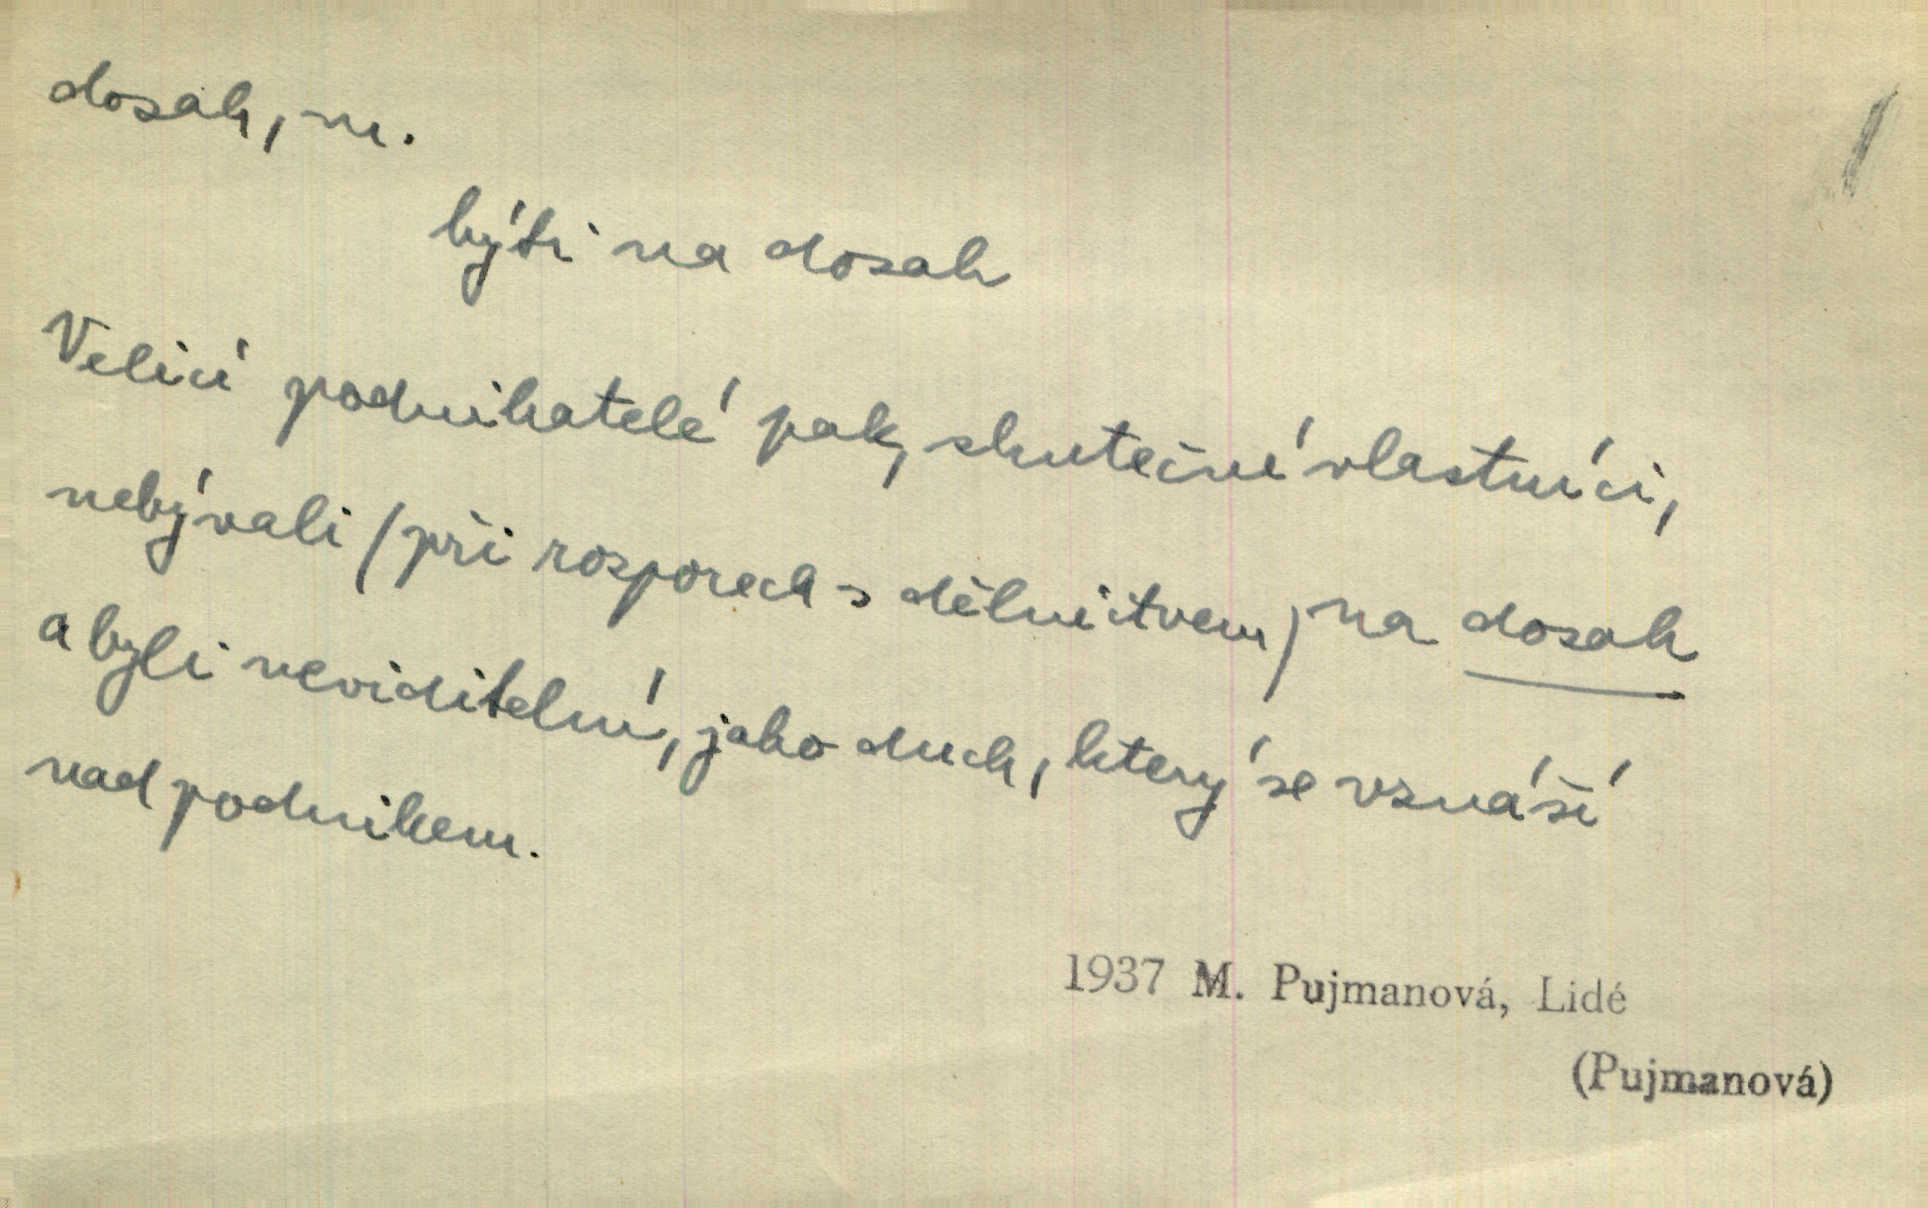 dosah, m.
býti na dosah
Velicí podnikatelé pak, skuteční vlastníci,
nebývali (při rozporech s dělnictvem) na dosah
a byli neviditelní, jako duch, který se vznáší
nad podnikem.
1937 M. Pujmanová, Lidé
(Pujmanová)